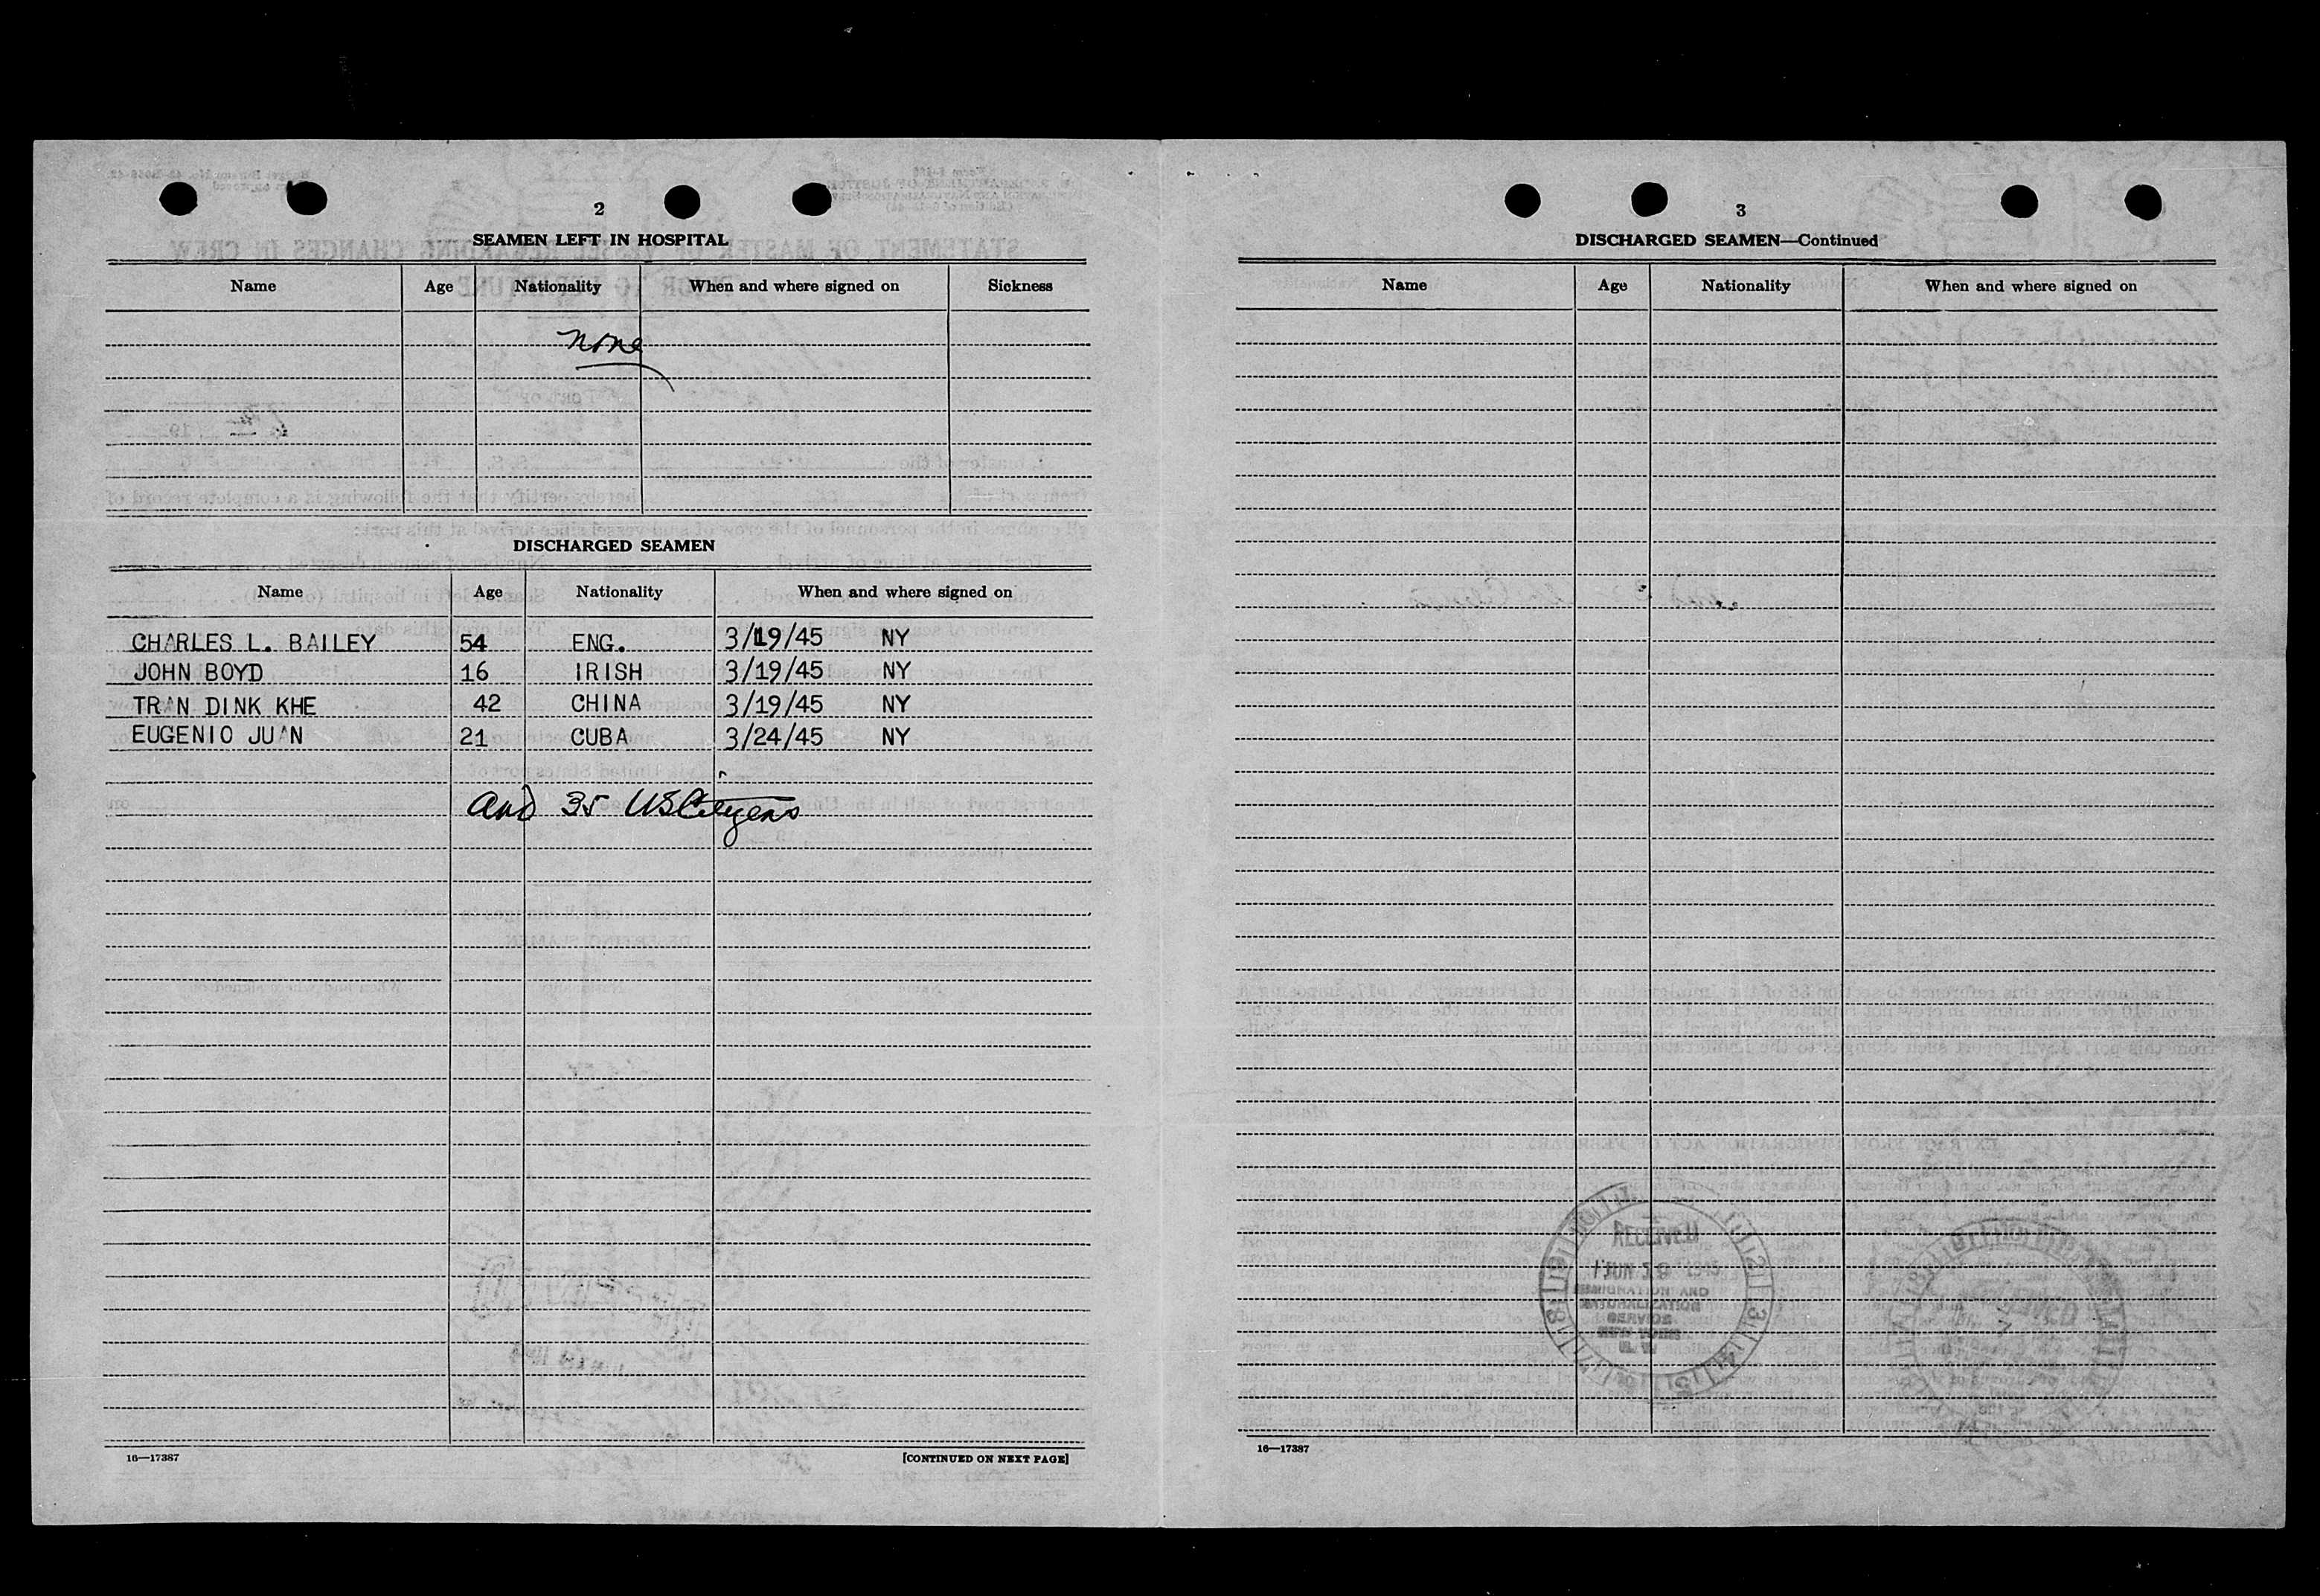 2
SEAMEN LEFT IN HOSPITAL
Name Age Nationality When and where signed on Sickness
None
DISCHARGED SEAMEN
Name Age Nationality When and where signed on
CHARLES L. BAILEY 54 ENG. 3/19/45 NY
JOHN BOYD 16 IRISH 3/19/45 NY
TRAN DINK KHE 42 CHINA 3/19/45 NY
EUGENIO JUAN 21 CUBA 3/24/45 NY
and 35 US Citizens
16—17387 [CONTINUED ON NEXT PAGE]
3
DISCHARGED SEAMEN—Continued
Name Age Nationality When and where signed on
RECEIVED
JUN 1945
IMMIGRATION AND
NATURALIZATION
SERVICE
NEW YORK
N.Y.
16—17387